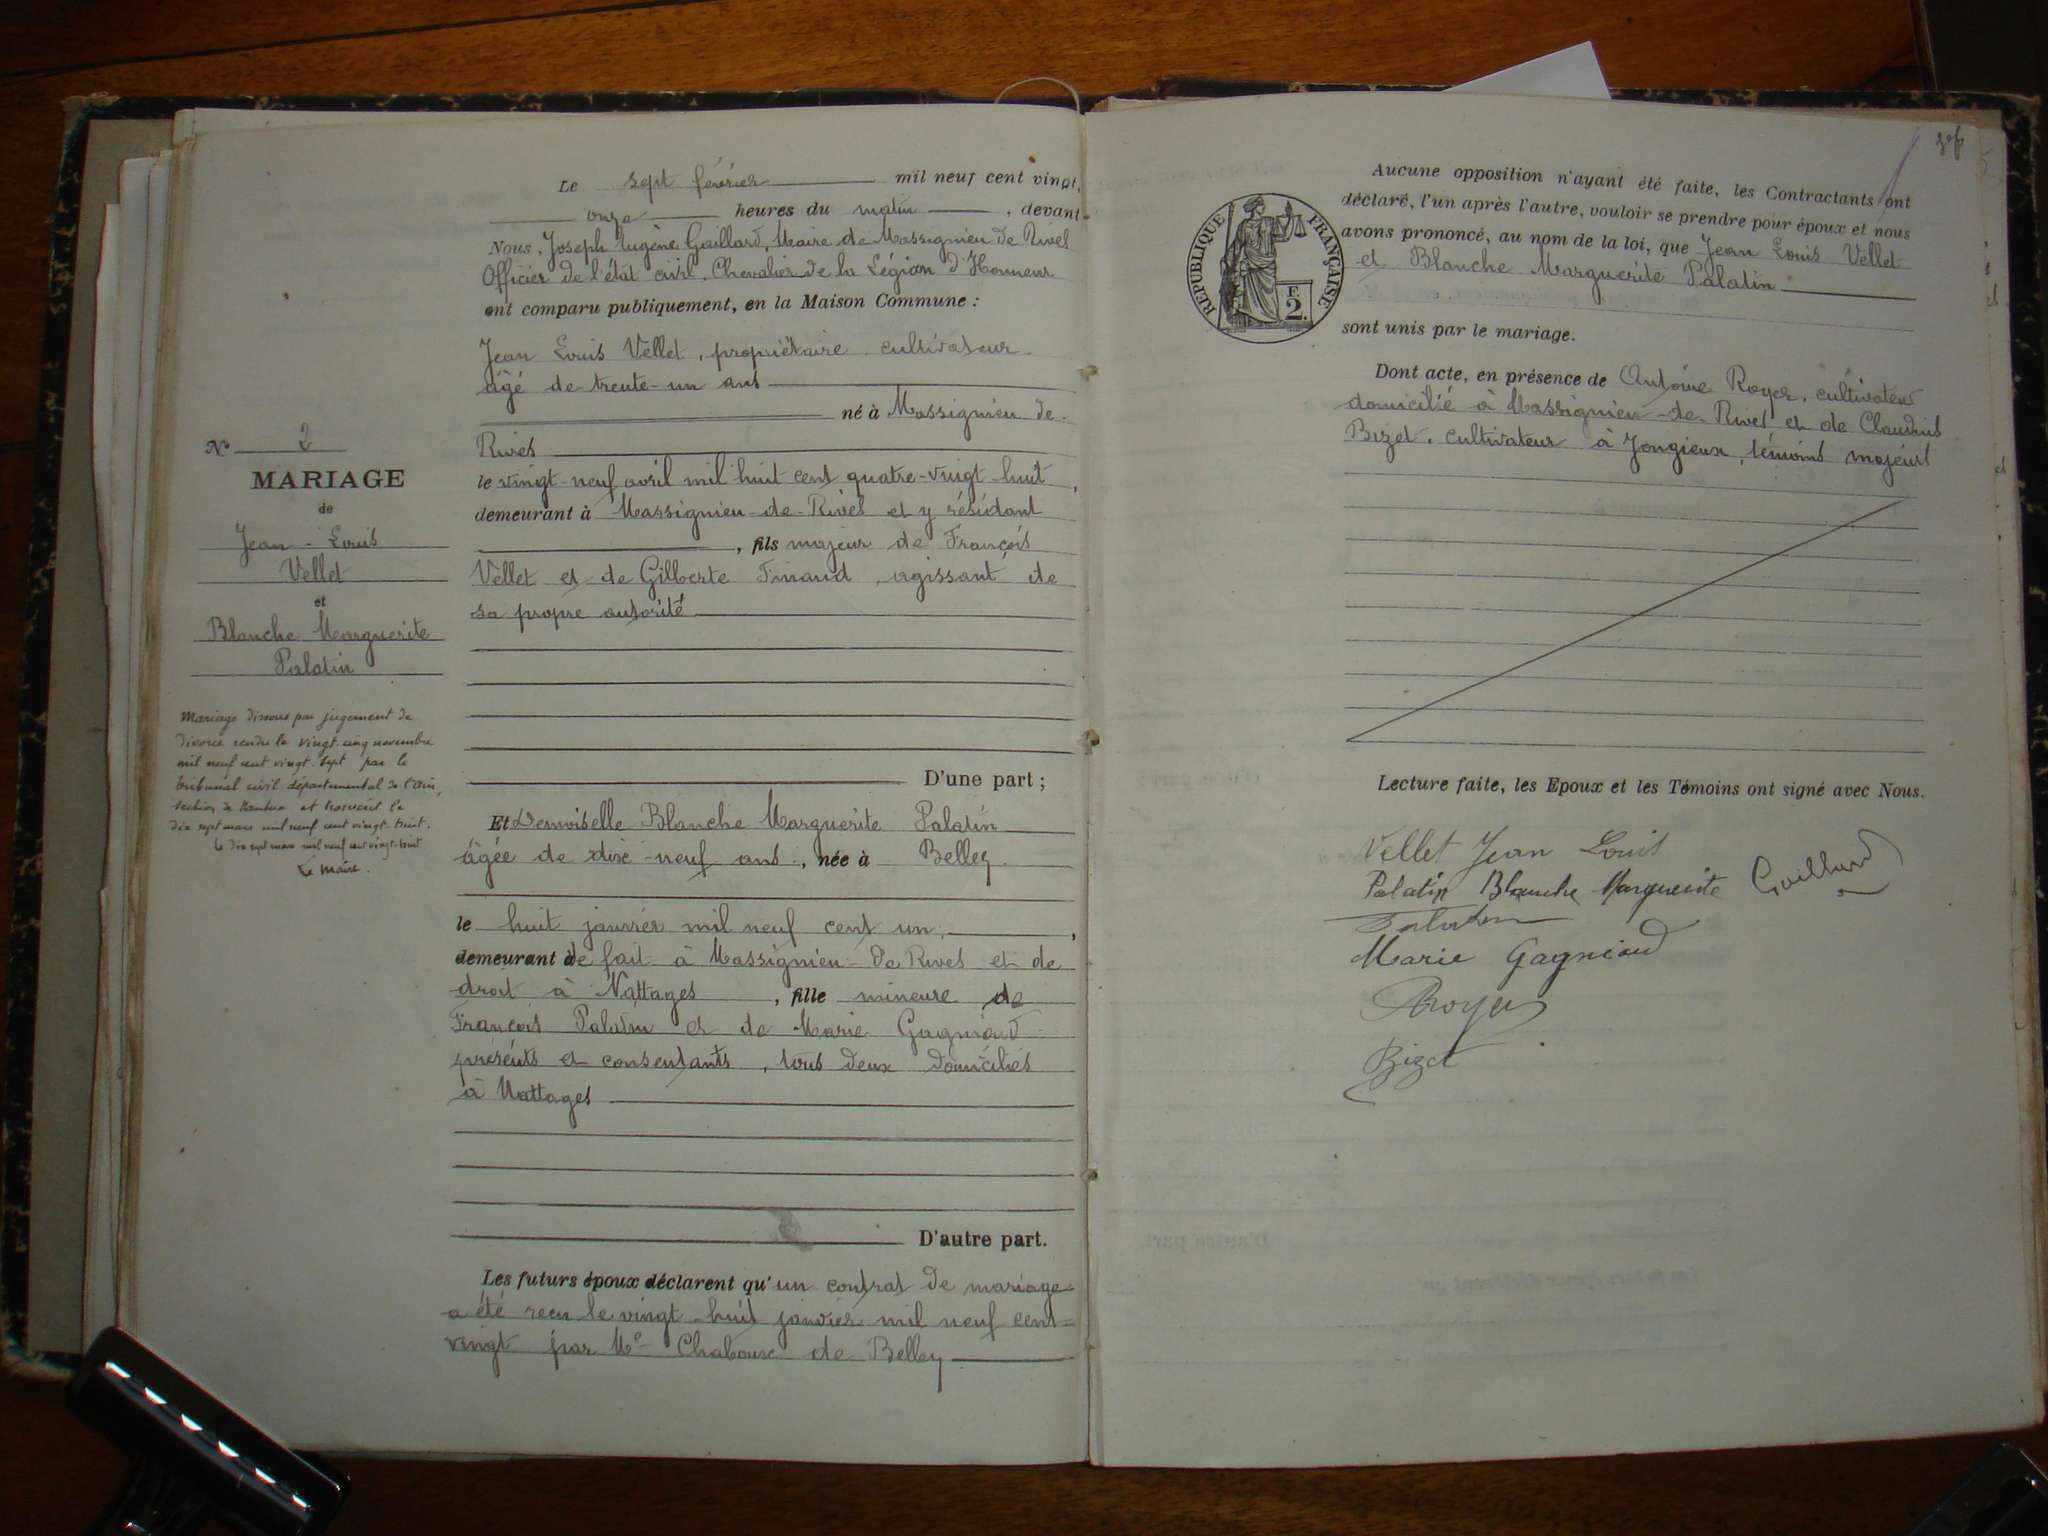 Le sept février mil neuf cent vingt,
onze heures du matin, devant
Nous, Joseph Eugène Gaillard, Maire de Massignieu de Rives
Officier de l'état civil, Chevalier de la Légion d'Honneur
ont comparu publiquement, en la Maison Commune :
Jean Louis Vellet, propriétaire cultivateur
âgé de trente-un ans
né à Massignieu de
Rives
le vingt-neuf avril mil huit cent quatre-vingt-huit,
demeurant à Massignieu-de-Rives et y résidant
, fils majeur de François
Vellet et de Gilberte Finaud, agissant de
sa propre autorité
D'une part ;
Et Demoiselle Blanche Marguerite Palatin
âgée de dix-neuf ans, née à Belley
le huit janvier mil neuf cent un,
demeurant de fait à Massignieu-de Rives et de
droit à Nattages, fille mineure de
François Palatin et de Marie Gagniaud
présents et consentants, tous deux domiciliés
à Nattages
D'autre part.
Les futurs époux déclarent qu'un contrat de mariage
a été reçu le vingt-huit janvier mil neuf cent
vingt par Me Chaboux de Belley
N° 2
MARIAGE
de
Jean-Louis
Vellet
et
Blanche Marguerite
Palatin
Mariage dissous par jugement de
divorce rendu le vingt-cinq novembre
mil neuf cent vingt-sept par le
tribunal civil départemental de l'Ain,
section de Nantua et transcrit le
dix sept mars mil neuf cent vingt-huit.
Le dix sept mars mil neuf cent vingt-huit
Le Maire.
REPUBLIQUE FRANÇAISE
F.
2.
Aucune opposition n'ayant été faite, les Contractants ont
déclaré, l'un après l'autre, vouloir se prendre pour époux et nous
avons prononcé, au nom de la loi, que Jean Louis Vellet
et Blanche Marguerite Palatin
sont unis par le mariage.
Dont acte, en présence de Antoine Royer, cultivateur
domicilié à Massignieu-de-Rives et de Claudius
Bizet, cultivateur à Jongieux, témoins majeurs
Lecture faite, les Epoux et les Témoins ont signé avec Nous.
Vellet Jean Louis
Palatin Blanche Marguerite Gaillard
Palatin
Marie Gagniaud
Royer
Bizet